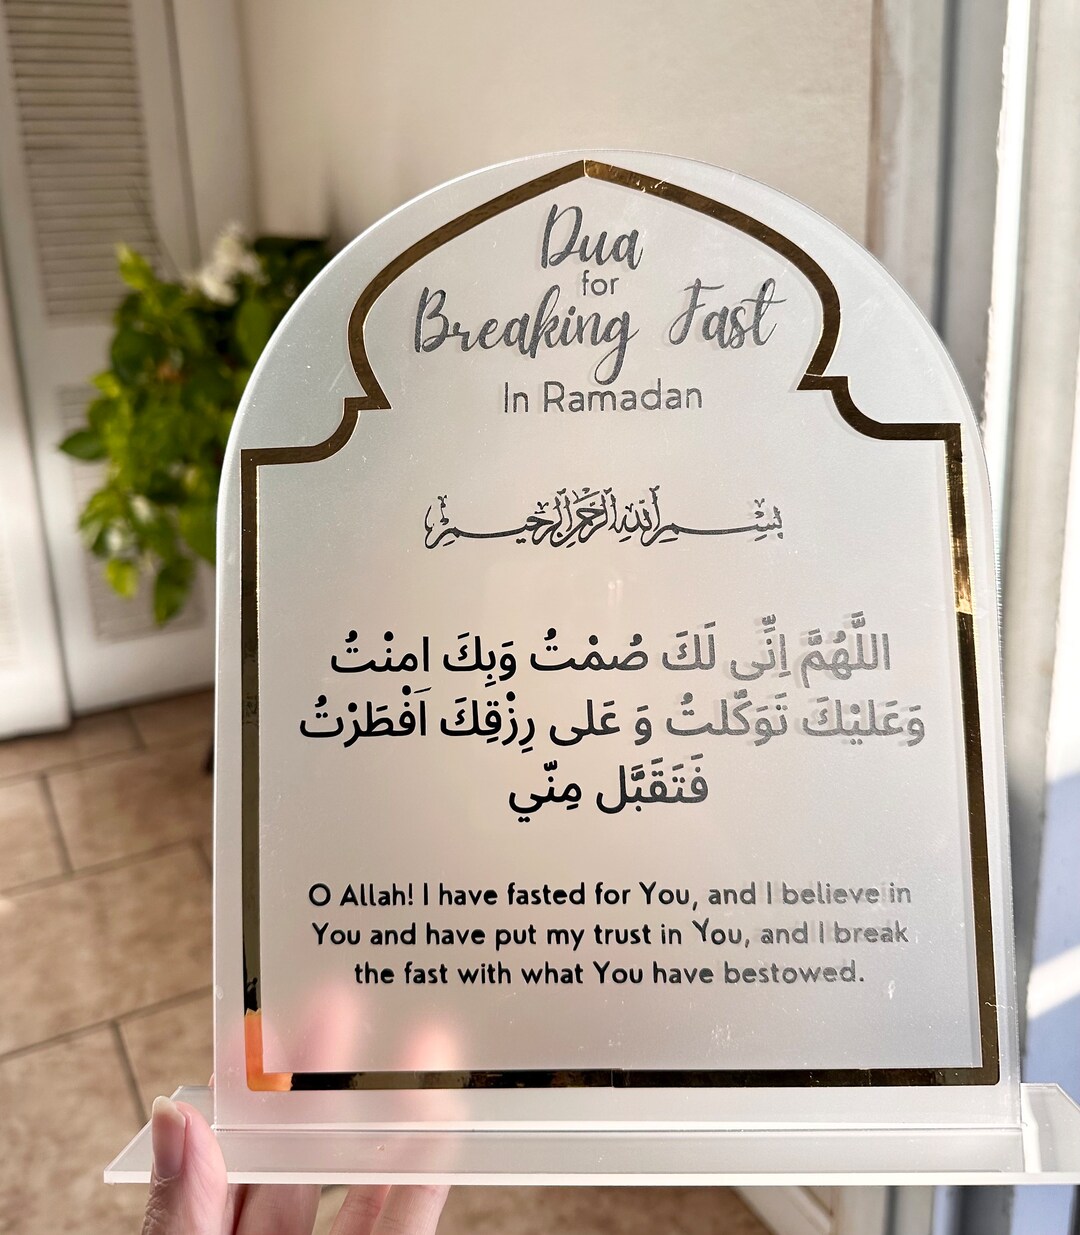 Dua
for
Breaking Fast
In Ramadan
بسم الله الرحمن الرحيم
اللَّهُمَّ اِنِّى لَكَ صُمْتُ وَبِكَ امنْتُ
وَعَليْكَ تَوَكَّلتُ وَ عَلى رِزْقِكَ اَفْطَرْتُ
فَتَقَبَّل مِنّي
O Allah! I have fasted for You, and I believe in
You and have put my trust in You, and I break
the fast with what You have bestowed.